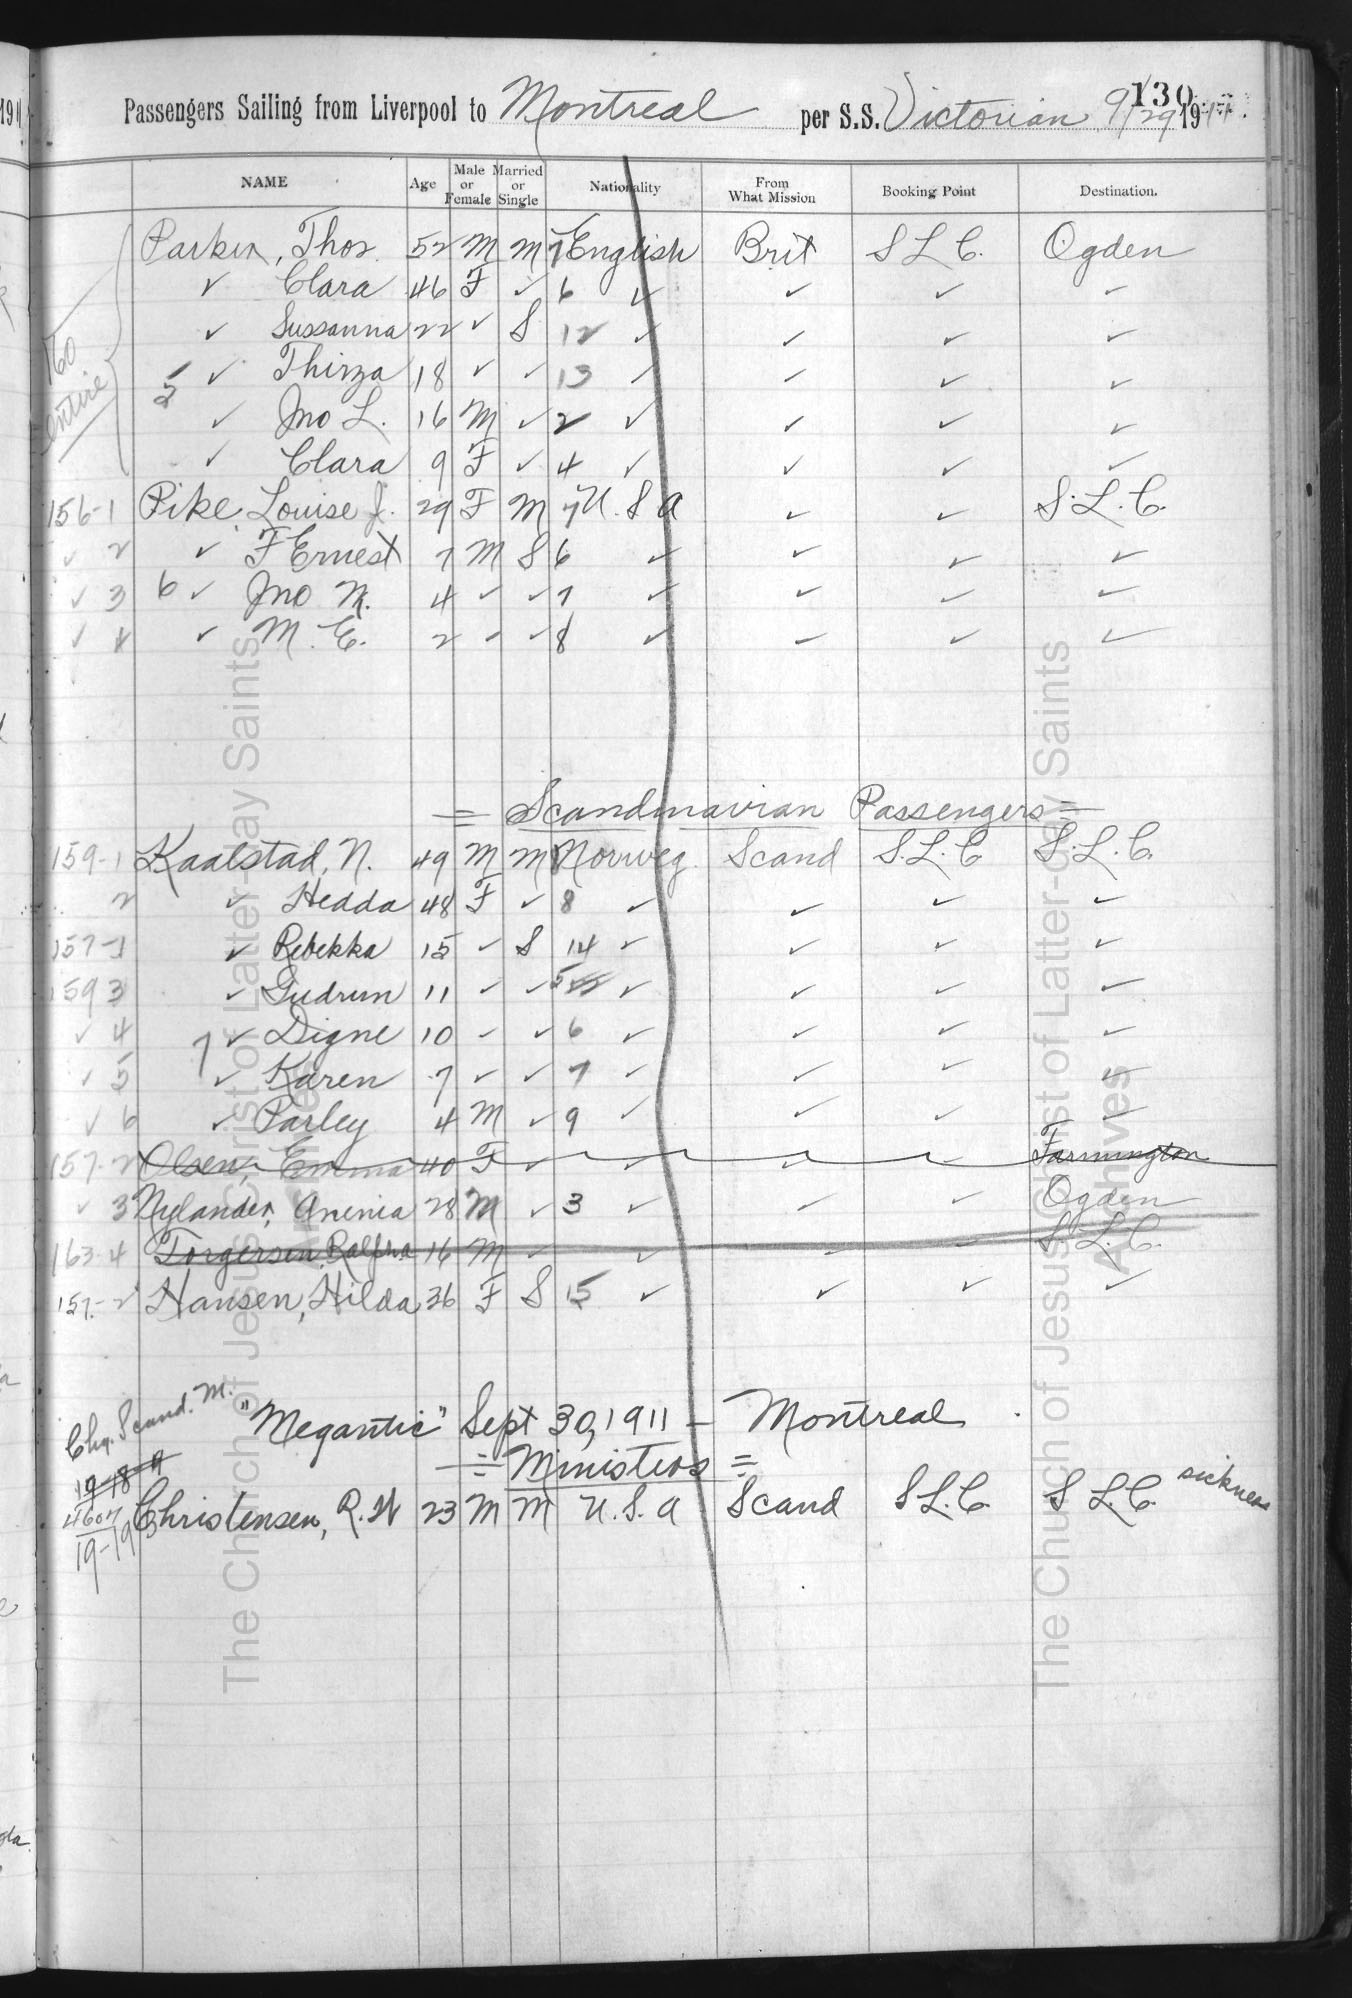 130
Passengers Sailing from Liverpool to Montreal per S.S. Victorian 9/29 1911
NAME Age Male or Female Married or Single Nationality From What Mission Booking Point Destination.
160 entire
Parkin, Thos. 52 M M 7 English Brit S L C. Ogden
✓ Clara 46 F ✓ 6 ✓ ✓ ✓ ✓
✓ Sussanna 22 ✓ S 12 ✓ ✓ ✓ ✓
5 ✓ Thirza 18 ✓ ✓ 13 ✓ ✓ ✓ ✓
✓ Jno L. 16 M ✓ 2 ✓ ✓ ✓ ✓
✓ Clara 9 F ✓ 4 ✓ ✓ ✓ ✓
156-1 Pike Louise J. 29 F M 7 U. S A ✓ ✓ S.L.C.
✓ 2 ✓ F Ernest 7 M S 6 ✓ ✓ ✓ ✓
✓ 3 6 ✓ Jno M. 4 ✓ ✓ 7 ✓ ✓ ✓ ✓
✓ 4 ✓ M. E. 2 ✓ ✓ 8 ✓ ✓ ✓ ✓
= Scandinavian Passengers =
159-1 Kaalstad, N. 49 M M Norweg. Scand S.L.C S.L.C.
2 ✓ Hedda 48 F ✓ 8 ✓ ✓ ✓ ✓
157-1 ✓ Rebekka 15 ✓ S 14 ✓ ✓ ✓ ✓
159 3 ✓ Gudrun 11 ✓ ✓ 5 ✓ ✓ ✓ ✓
✓ 4 7 ✓ Signe 10 ✓ ✓ 6 ✓ ✓ ✓ ✓
✓ 5 ✓ Karen 7 ✓ ✓ 7 ✓ ✓ ✓ ✓
✓ 6 ✓ Parley 4 M ✓ 9 ✓ ✓ ✓ ✓
157-2 Olsen, Emma 40 F ✓ ✓ ✓ ✓ Farmington
✓ 3 Nylander, Anenia 28 M ✓ 3 ✓ ✓ ✓ Ogden
163-4 Torgersen, Ralph 16 M ✓ ✓ ✓ ✓ S.L.C.
157-2 Hansen, Hilda 36 F S 15 ✓ ✓ ✓ ✓
Chg. Scand. M.
"Megantic" Sept 30, 1911 - Montreal
= Ministers =
19-18-
Christensen, R. H 23 M M U.S.A Scand S L.C. S L.C. sickness
19-19
The Church of Jesus Christ of Latter-day Saints
Archives
The Church of Jesus Christ of Latter-day Saints
Archives